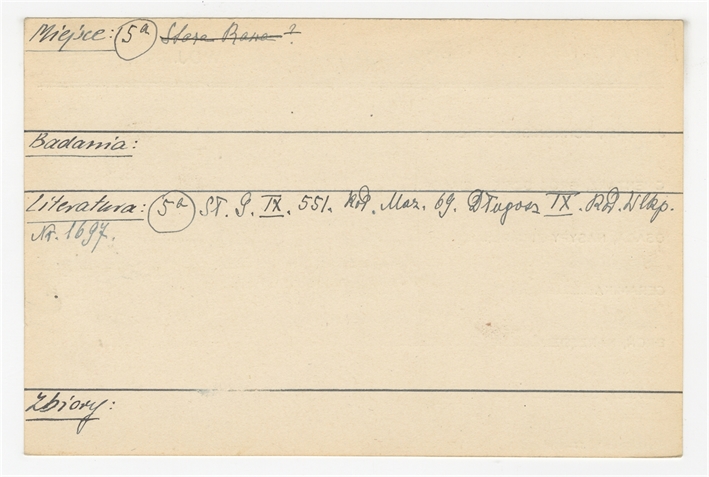 Miejsce: 5a Stara Rawa ?
Badania:
Literatura: 5a Sł. G. IX. 551. Kod. Maz. 69. Długosz IX. Kod. Wlkp.
Nr. 1697.
Zbiory: